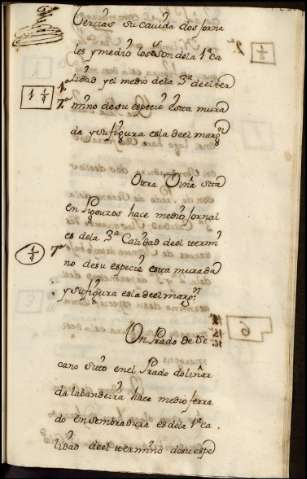 tercias su cavida dos Jorna
les y medio los dos son de la 1ª Ca
lidad y el medio de la 3ª del ter
mino de su especie esta mura
da y su figura es la del margen
Otra Viña sita
en Pigueiros hace medio Jornal
es de la 3ª Calidad del termi
no de su especie esta murada
y su figura es la del margen
Un Prado de se
cano sito en el Prado do
da labandeira hace medio ferra
do en sembradura es de la 1ª ca
lidad del termino de su espe